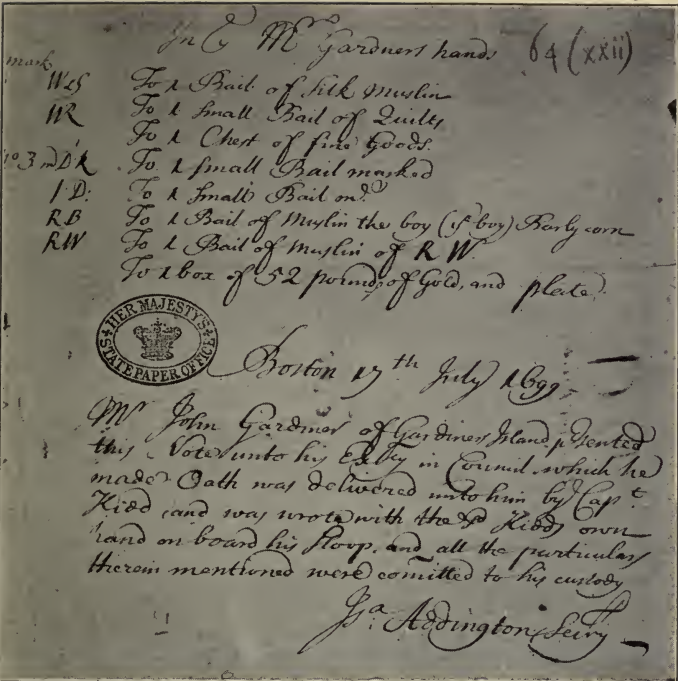 In Mrs Gardners hands 64 (xxii)
mark
WLG To 1 Bail of Silk Muslin
WR To 1 Small Bail of Quilts
To 1 Chest of fine Goods.
no 3 mD'R To 1 small Bail marked
I D: To 1 Small Bail
RB To 1 Bail of Muslin the boy (is boy) Barlycorn
RW To 1 Bail of Muslin of R W.
To 1 box of 52 pounds of Gold, and plate
HER MAJESTY'S
STATE PAPER OFFICE
Boston 17th July 1699.
Mr John Gardiner of Gardiners Island presented
this Note unto his Excy in Council which he
made Oath was delivered unto him by Capt
Kidd and was wrote with the sd Kidds own
hand on board his sloop, and all the particulars
therein mentioned were comitted to his custody
Isa. Addington Secry